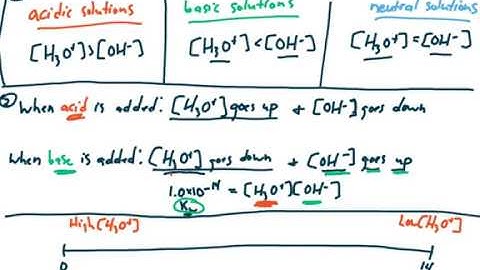 acidic solutions
basic solutions
neutral solutions
[H₃O⁺]>[OH⁻]
[H₃O⁺]<[OH⁻]
[H₃O⁺]=[OH⁻]
② When acid is added: [H₃O⁺] goes up + [OH⁻] goes down
When base is added: [H₃O⁺] goes down + [OH⁻] goes up
1.0x10⁻¹⁴ = [H₃O⁺][OH⁻]
Kw
High [H₃O⁺]
Low [H₃O⁺]
0
14